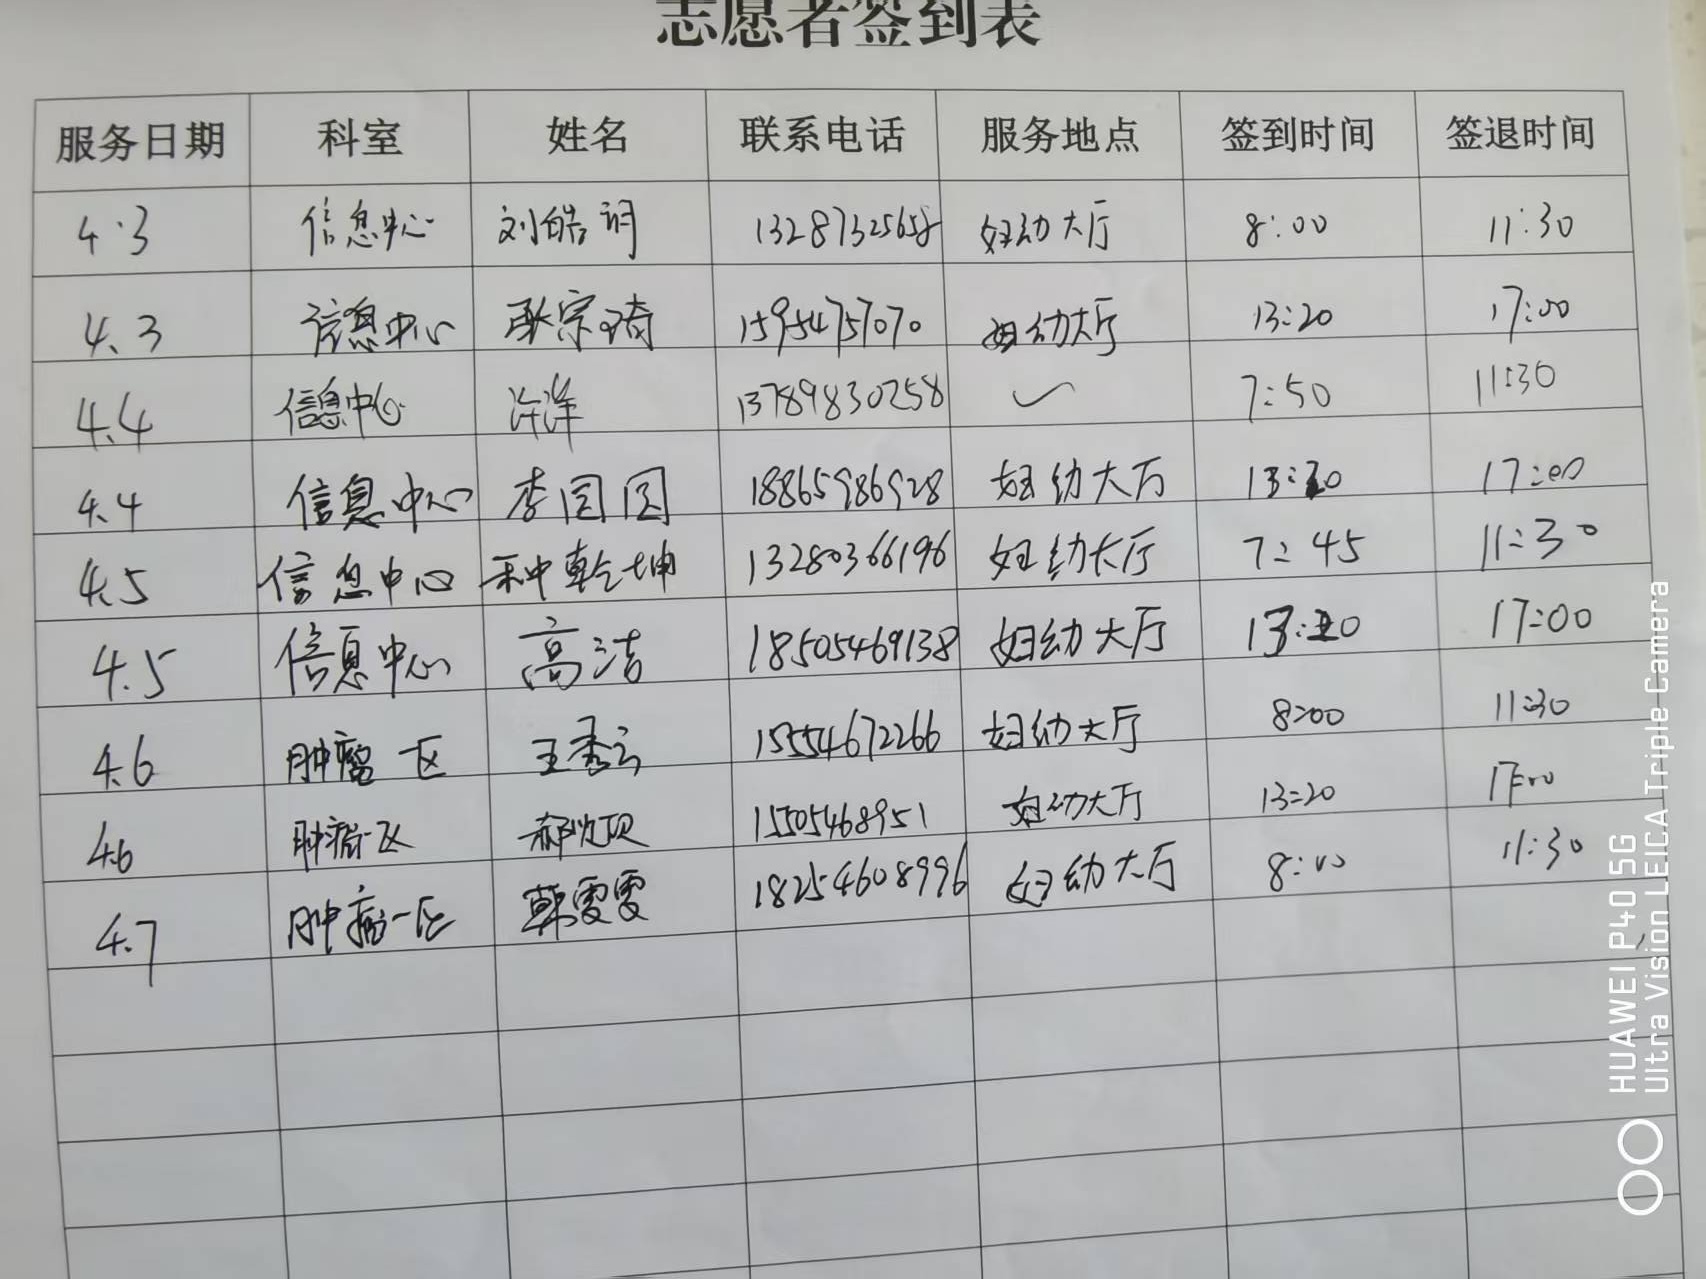 志愿者签到表
服务日期 科室 姓名 联系电话 服务地点 签到时间 签退时间
4.3 信息中心 刘皓 13287325658 妇幼大厅 8:00 11:30
4.3 信息中心 宗琦 15954757070 妇幼大厅 13:20 17:00
4.4 信息中心 许洋 13789830258 ✓ 7:50 11:30
4.4 信息中心 李圆圆 18865986928 妇幼大厅 13:20 17:00
4.5 信息中心 种乾坤 13280366196 妇幼大厅 7:45 11:30
4.5 信息中心 高洁 18505469138 妇幼大厅 13:20 17:00
4.6 肿瘤一区 王秀云 15554672266 妇幼大厅 8:00 11:30
4.6 肿瘤一区 郝 15505468951 妇幼大厅 13:20 17:00
4.7 肿瘤一区 韩雯雯 18254608996 妇幼大厅 8:00 11:30
HUAWEI P40 5G
Ultra Vision LEICA Triple Camera